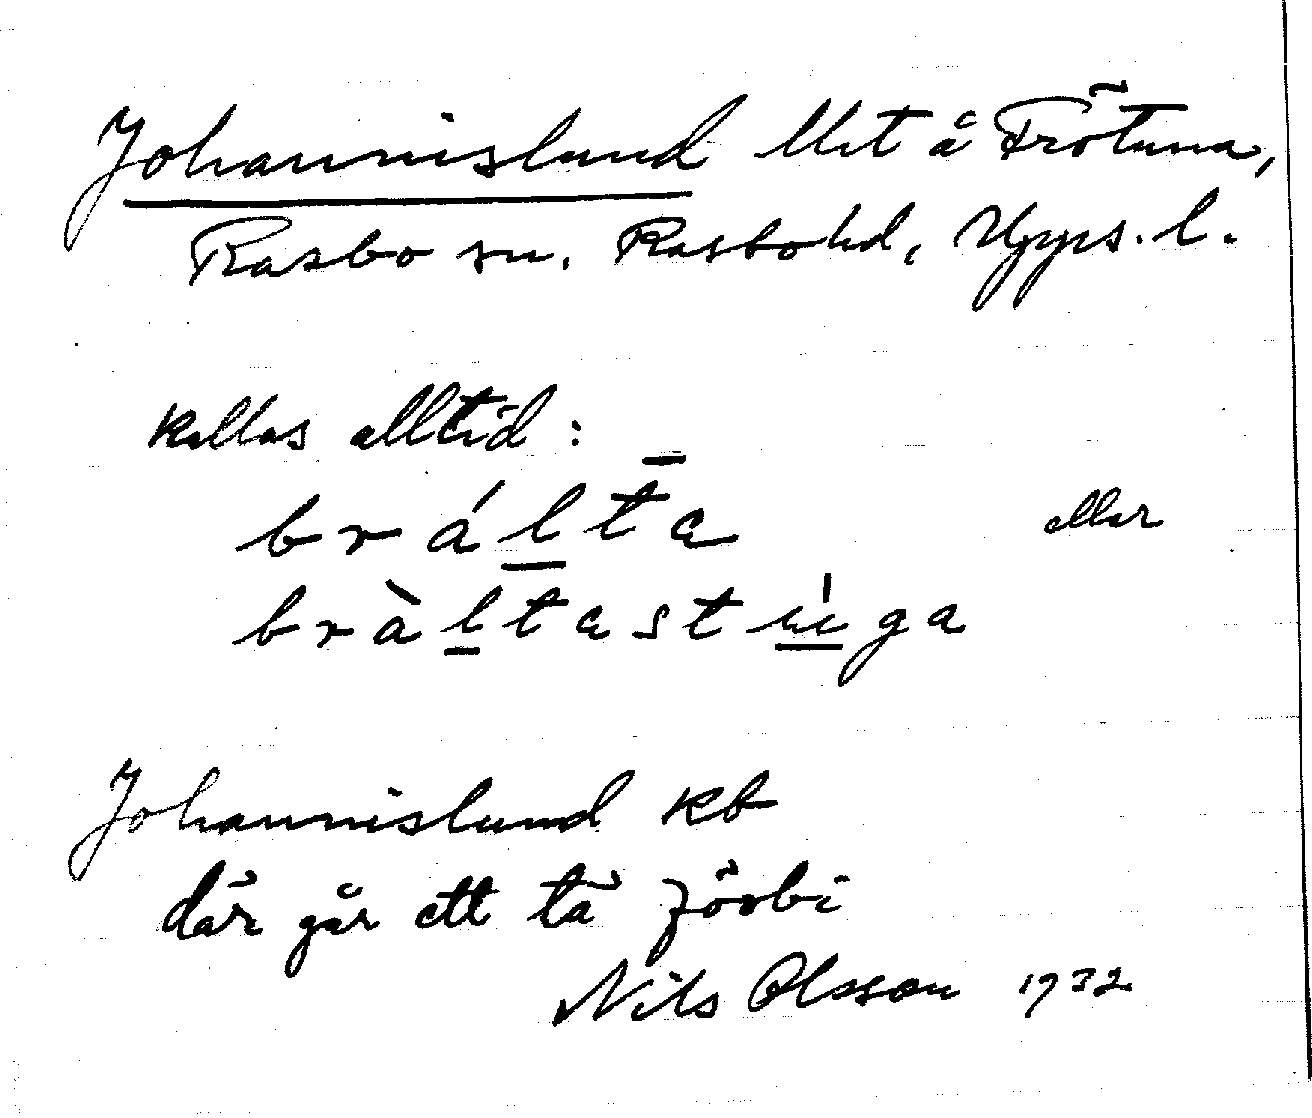 Johannislund llet å Frötuna,
Rasbo sn. Rasbo hd, Upps. l.
kallas alltid:
brálta eller
bràltastúga
Johannislund kb
där går ett tå förbi
Nils Olsson 1932